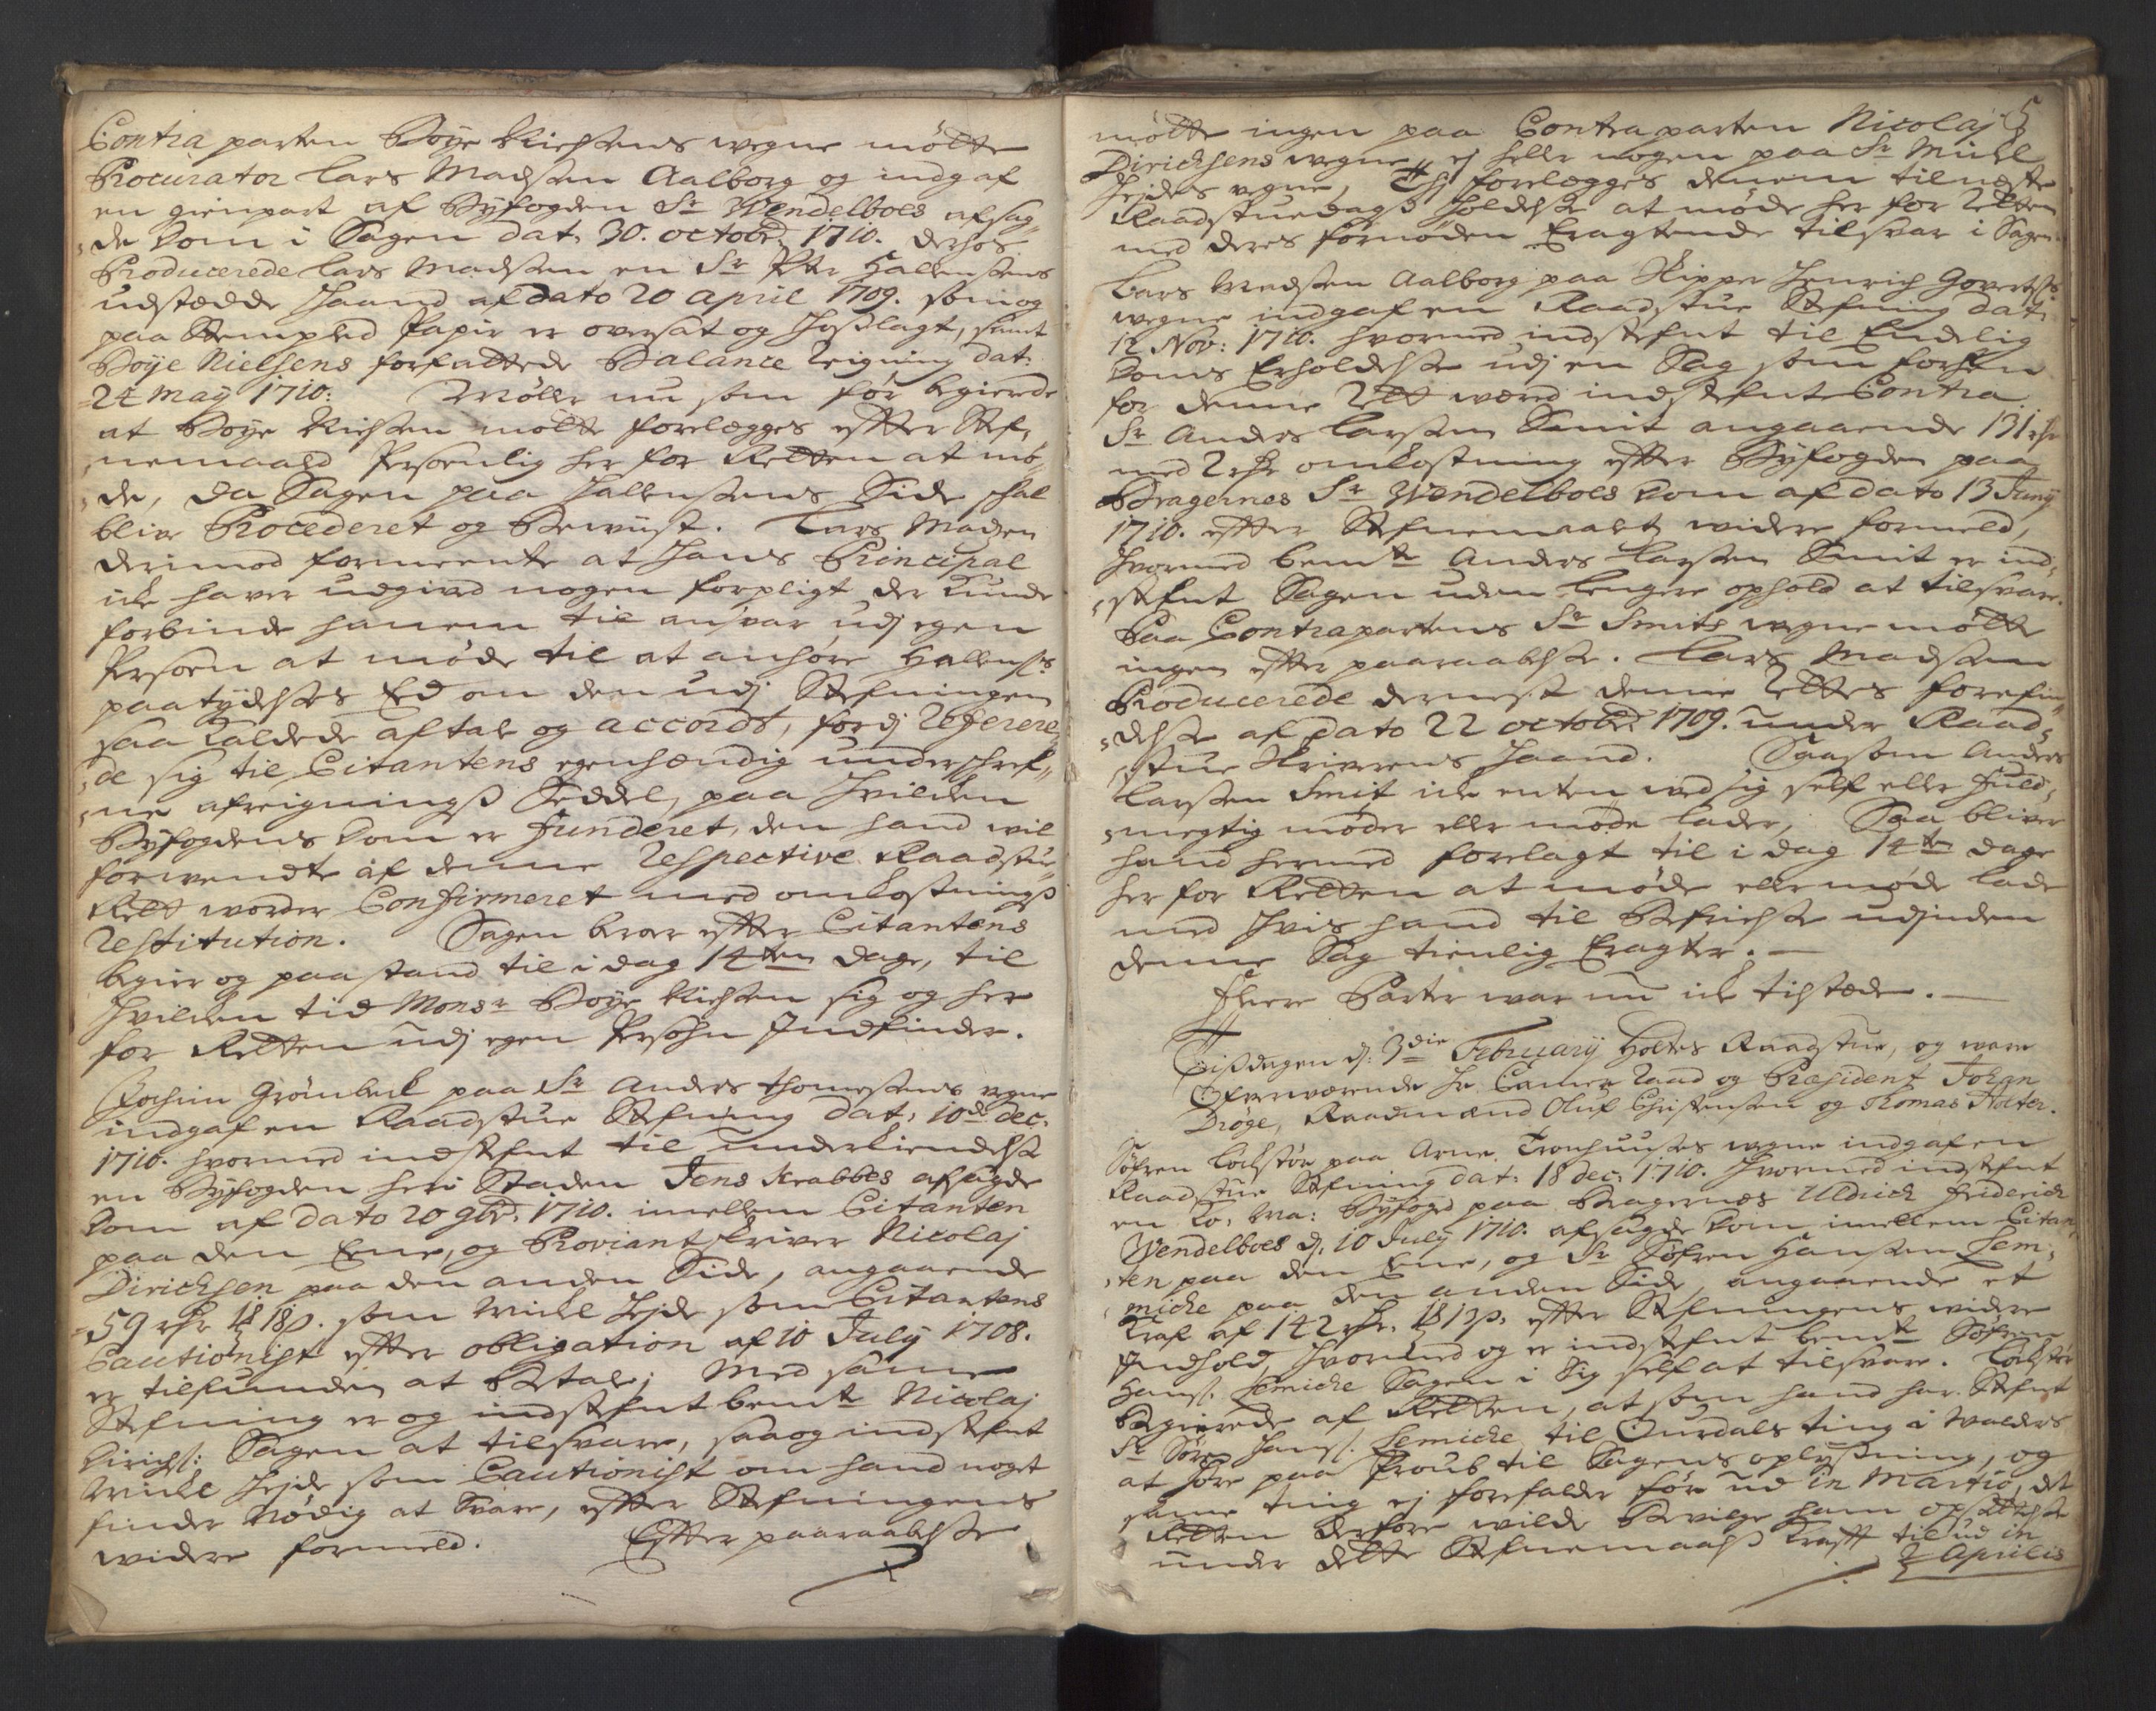 Contra parten Boye Nielsens wegne mötte
Procurator Lars Madsen Aalborg og indgaf
en gienpart af Byfogden Sr Wendelboes afsag„
„de Dom i Sagen dat. 30. octobr. 1710. derhos
Producerede Lars Madsen en Sr Ptr Hallensens
udstædde Haand af dato 20 april 1709. som og
paa Stempled Papir er oversat og Hoslagt, samt
Boye Nielsens forfattede Balance Reigning dat.
24 May 1710: Möller nu som för begierede
at Boye Nielsen motte forelægges effter Stef„
„nemaals Persoenlig her for Retten at mö„
„de, da Sagen paa Hallensens Side skal
blive Procederet og Bewiist. Lars Madsen
derimod formeente at Hans Principal
icke haver udgived nogen forpligt der kunde
forbinde hannem til ansvar udj egen
Persoen at möde til at anhöre Hallens:s
paatydelses Ed om den udj Stefningen
saa kaldede aftale og accordt, fordj Referere„
„de sig til Citantens egenhændig underskref„
„ne afreignings Seddel, paa Hvilken
Byfogdens Dom er funderet, den hand wil
forwendte af denne Respective Raadstue
Rett worder Confirmeret med omkostnings
Restitution. Sagen beror effter Citantens
begier og paastand til i dag 14ten dage, til
Hvilken tid Monsr Boye Nielsen sig og her
for Retten udj egen Persohn Indfinder.
Jochim Grönbech paa Sr Anders Thomesens wegne
indgaf en Raadstue Stefning dat. 10de Dec.
1710. hvormed indstefnt til underkiendelse
en Byfogden her i Staden Jens Krabbes afsagde
Dom af dato 20 9br. 1710. imellem Citanten
paa den Eene, og Proviantskriver Nicolaj
Dirichsen paa den anden Side, angaaende
59 rdr 18 s. som Michel Hejde som Citantens
Cautionist effter obligation af 10 July 1708.
er tilfunden at Betale; Med samme
Stefning er og indstefnt bemte Nicolaj
Dirichs: Sagen at tilsvare, saa og indstefnt
Michel Hejde som Cautionist om hand noget
finder Nödig at Svare, effter Stefningens
widere formeld. Effter paaraabelse
5
mötte ingen paa Contraparten Nicolaj
Dirichsens wegne, ej heller nogen paa Sr Michel
Hejdes wegne, Thj forelægges dennem til næste
Raadstuedags Holdelse at möde her for Retten
med deres fornöden Eragtende tilsvar i Sagen.
Lars Madsen Aalborg paa Skipper Henrich Goverts:s
wegne indgaf en Raadstue Stefning dat.
12 Nov: 1710. hvormed indstefnt til Endelig
Doms Erholdelse udj en Sag som forhen
for denne Rett wæred indstefnt Contra
Sr Anders Larsen Smit angaaende 131 rdr
med 2 rdr omkostning effter Byfogden paa
Bragernes Sr Wendelboes Dom af dato 13 Junij
1710. effter Stefnemaalets widere formeld,
Hvormed bemte Anders Larsen Smit er ind„
„stefnt Sagen uden lengere ophold at tilsvare.
Paa Contrapartens Sr Smits wegne mötte
ingen effter paaraabelse. Lars Madsen
Producerede dernest denne Rettes forefin„
„delse af dato 22 octobr. 1709. under Raad„
„stue Skriverens Haand. Saasom Anders
Larsen Smit icke enten wed sig self eller Fuld„
„megtig möder eller möde lader, Saa bliver
hand hermed forelagt til i dag 14ten dage
her for Retten at möde eller möde lade
med Hvis hand til Befrielse udjnden
denne Sag tienlig Eragter.
Fleere Parter war nu icke tilstæde.
Tissdagen d. 3die February Holtes Raadstue, og ware
Ofverwærende Hr. Camer Raad og Præsident Johan
Dröge, Raadmænd Oluf Christensen og Thomas Nolter.
Söfren Lochstör paa Arne Tronhuuses wegne indgaf en
Raadstue Stefning dat. 18 Dec: 1710. Hvormed indstefnt
en Ko: Ma: Byfogd paa Bragernæs Uldrich Friderich
Wendelboes d. 10 July 1710. afsagde Dom imellem Citan„
„ten paa den Eene, og Sr Söfren Hansen Lem„
„miche paa den anden Side, angaaende et
Kraf af 142 rdr. effter Stefningens widere
Indhold, Hvormed og er indstefnt bemte Söfren
Hans: Lemiche Sagen i Sig self at tilsvare. Lochstör
Begierede af Retten, at som hand har Stefnt
Sr Sörn Hans: Lemiche til Ourdals ting i Walders
at före paa Proub til Sagens oplysning, og
samme ting ej forefalder för ud in Martio, det
Retten derfore wilde Bevilge ham opsættelse
under dette Stefnemaals Krafft til ud in
2 Aprilis